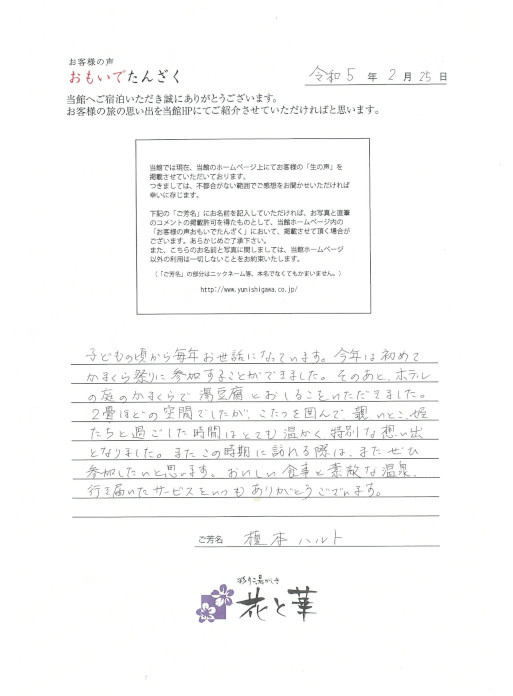 お客様の声
おもいでたんざく
令和5年2月25日
当館へご宿泊いただき誠にありがとうございます。
お客様の旅の思い出を当館HPにてご紹介させていただければと思います。
当館では現在、当館のホームページ上にてお客様の「生の声」を
掲載させていただいております。
つきましては、不都合がない範囲でご感想をお聞かせいただければ
幸いに存じます。
下記の「ご芳名」にお名前を記入していただければ、お写真と直筆
のコメントの掲載許可を得たものとして、当館ホームページ内の
「お客様の声おもいでたんざく」において、掲載させて頂く場合が
ございます。あらかじめご了承下さい。
また、こちらのお名前と写真に関しましては、当館ホームページ
以外の利用は一切しないことをお約束いたします。
(「ご芳名」の部分はニックネーム等、本名でなくてもかまいません。)
http://www.yunishigawa.co.jp/
子どもの頃から毎年お世話になっています。今年は初めて
かまくら祭りに参加することができました。そのあと、ホテル
の庭のかまくらで湯豆腐とおしるこをいただきました。
2畳ほどの空間でしたが、こたつを囲んで、親、いとこ、姪
たちと過ごした時間はとても温かく特別な想い出
となりました。またこの時期に訪れる際は、またぜひ
参加したいと思います。おいしい食事と素敵な温泉、
行き届いたサービスをいつもありがとうございます。
ご芳名 榎本ハルト
彩り湯かしき
花と華